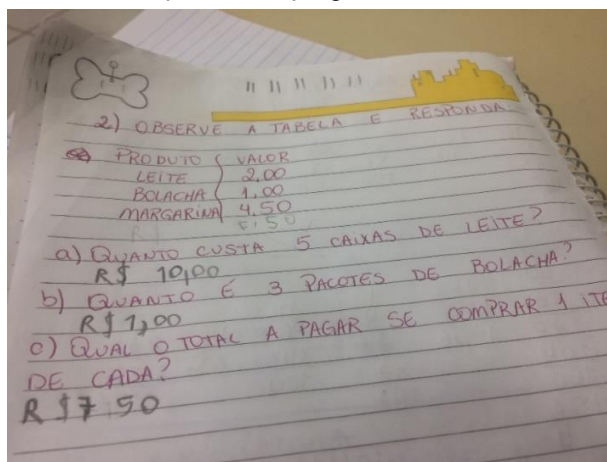 " " " " "
2) OBSERVE A TABELA E RESPONDA
PRODUTO VALOR
LEITE 2,00
BOLACHA 1,00
MARGARINA 4,50
a) QUANTO CUSTA 5 CAIXAS DE LEITE?
R$ 10,00
b) QUANTO É 3 PACOTES DE BOLACHA?
R$ 1,00
c) QUAL O TOTAL A PAGAR SE COMPRAR 1 ITE
DE CADA?
R $7 50